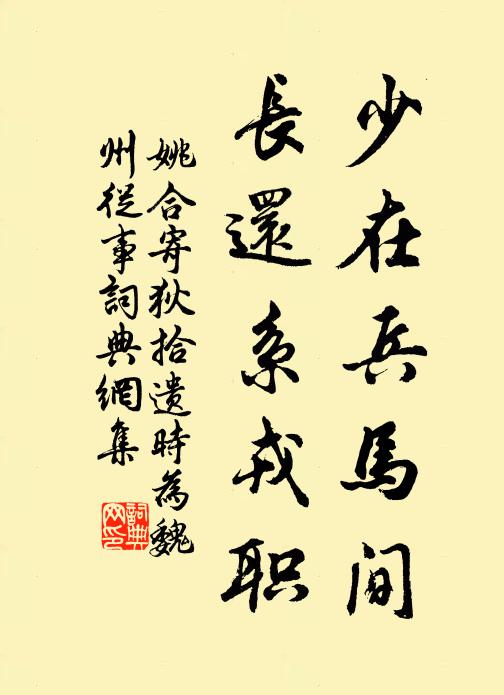 少在兵馬間
長還系戎职
姚合寄狄拾遺時為魏
州從事詞典網集
詞典
网印